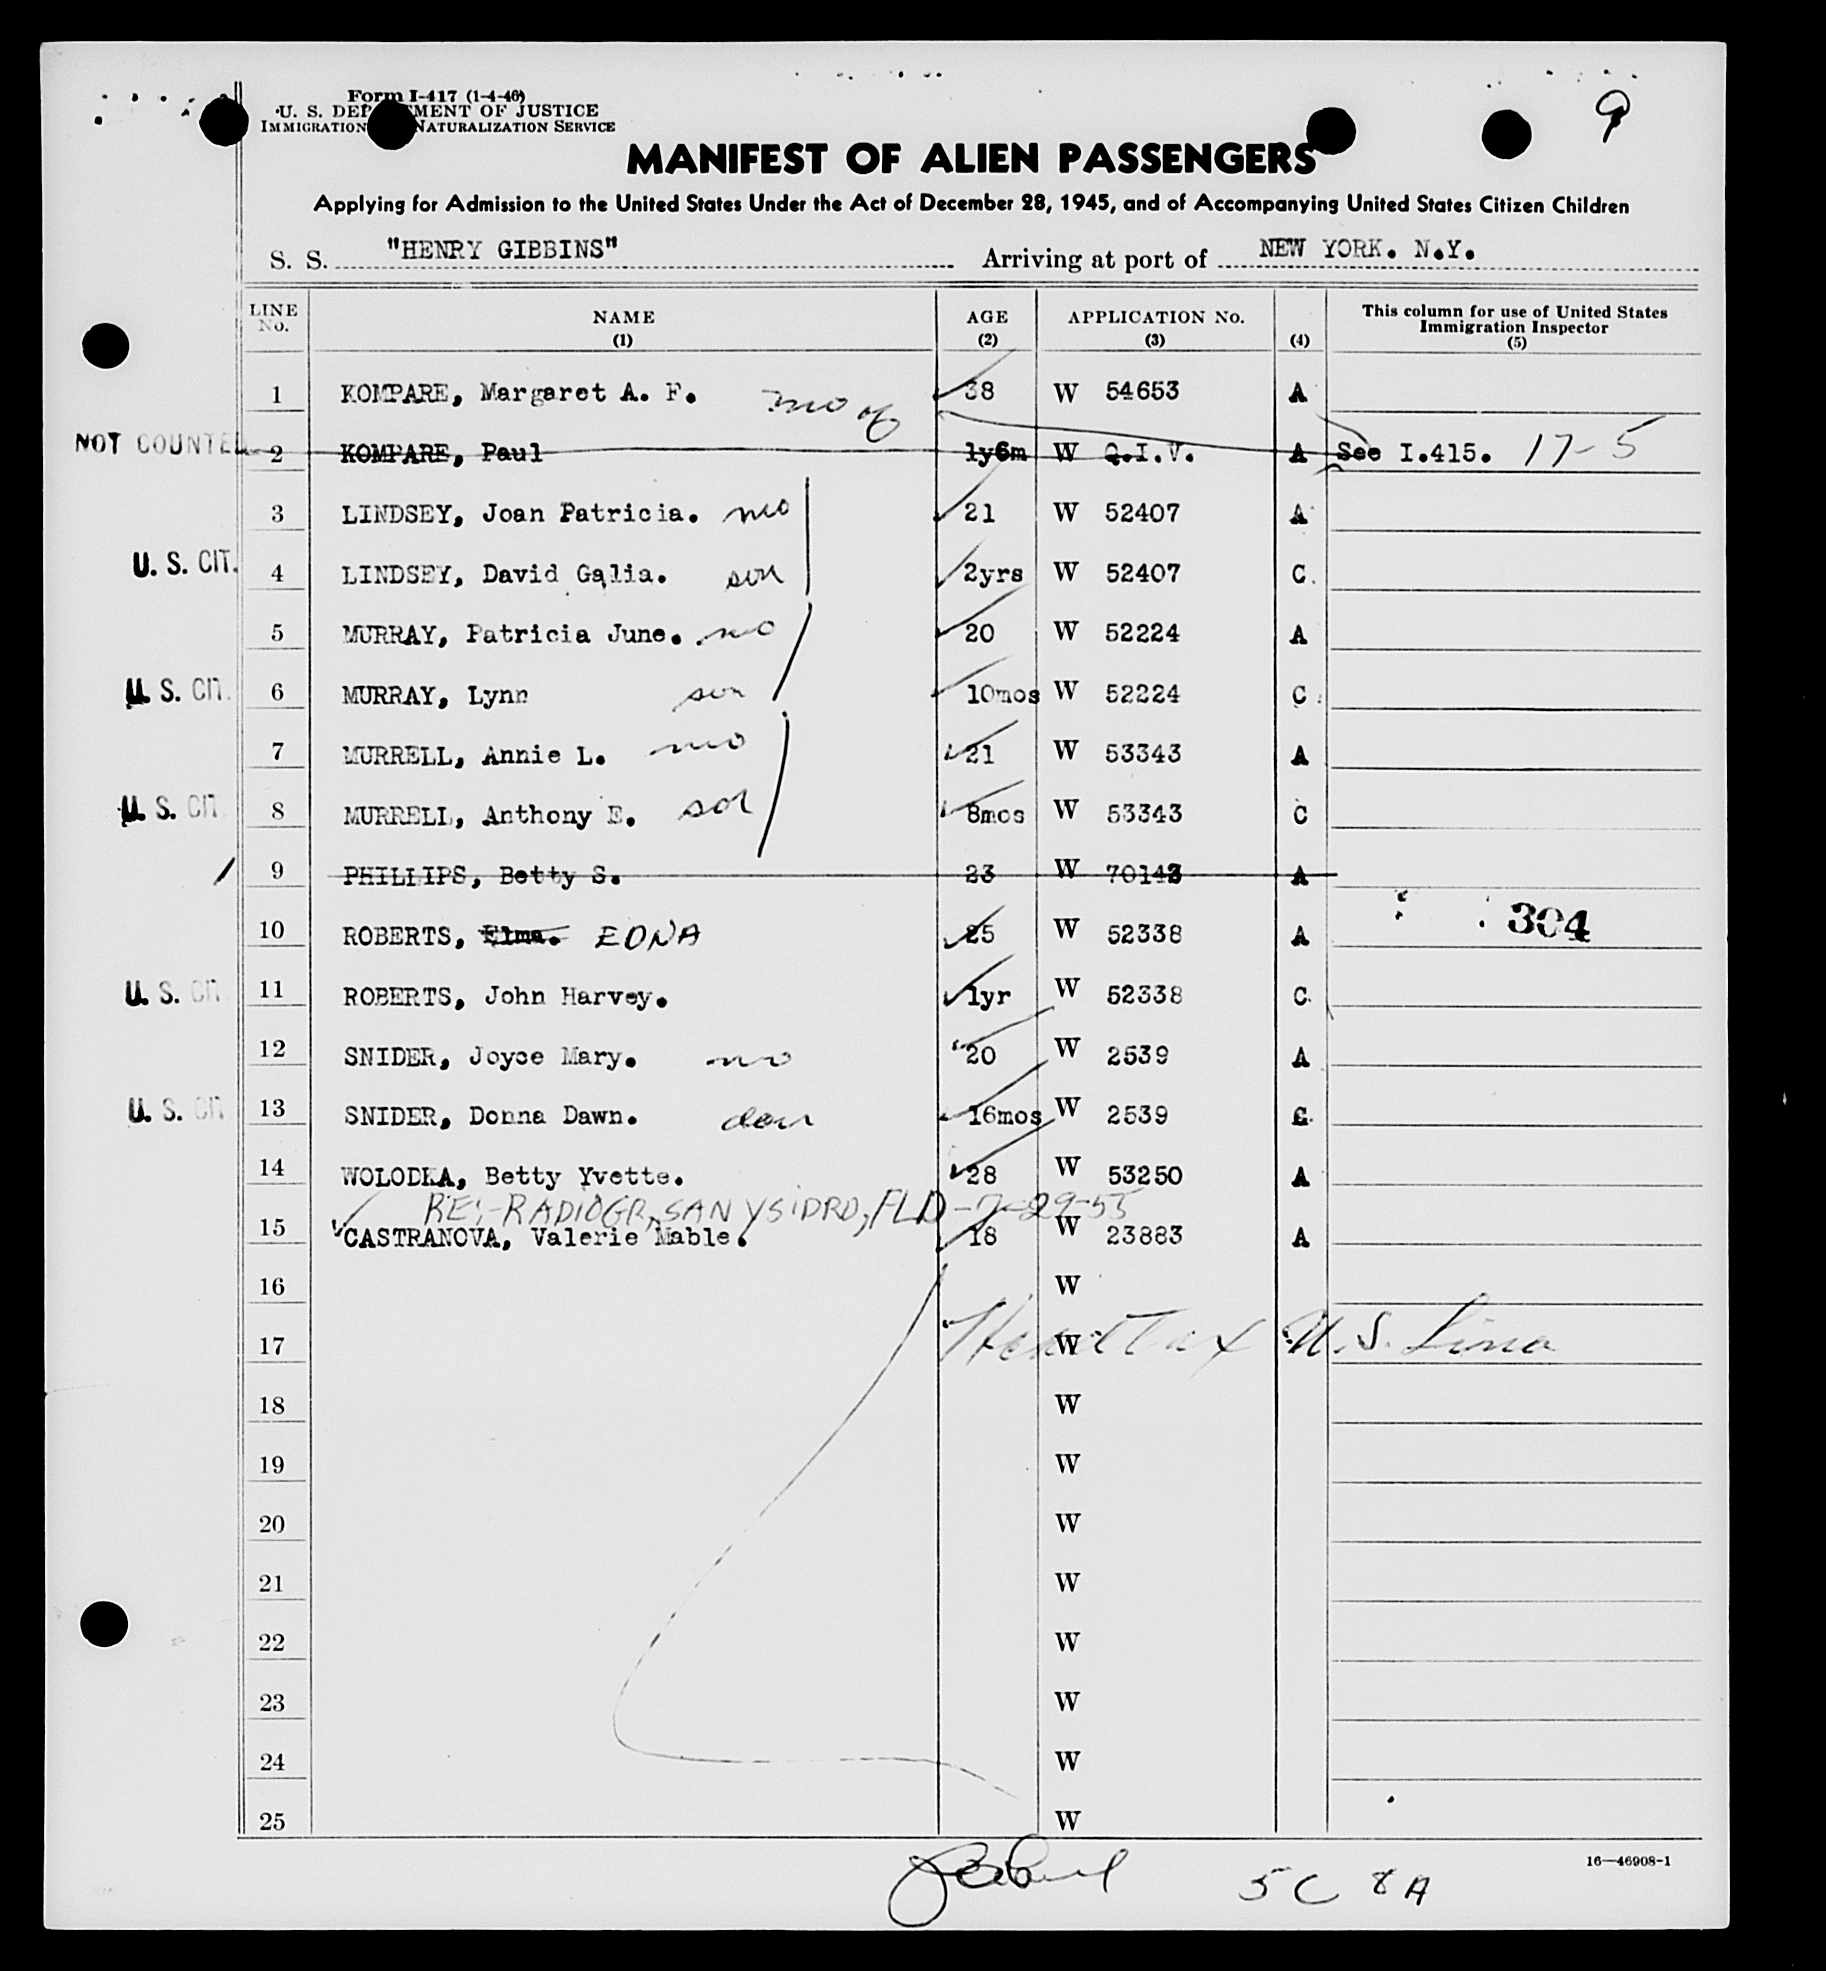 9
Form I-417 (1-4-46)
U. S. DEPARTMENT OF JUSTICE
IMMIGRATION NATURALIZATION SERVICE
MANIFEST OF ALIEN PASSENGERS
Applying for Admission to the United States Under the Act of December 28, 1945, and of Accompanying United States Citizen Children
S. S. "HENRY GIBBINS" Arriving at port of NEW YORK. N.Y.
LINE No. NAME (1) AGE (2) APPLICATION No. (3) (4) This column for use of United States Immigration Inspector (5)
1 KOMPARE, Margaret A. F. mo of 38 W 54653 A
NOT COUNTED 2 KOMPARE, Paul 1y6m W Q.I.V. A See I.415. 17-5
3 LINDSEY, Joan Patricia. mo 21 W 52407 A
U. S. CIT. 4 LINDSEY, David Galia. son 2yrs W 52407 C.
5 MURRAY, Patricia June. mo 20 W 52224 A
U. S. CIT. 6 MURRAY, Lynn son 10mos W 52224 C
7 MURRELL, Annie L. mo 21 W 53343 A
U. S. CIT 8 MURRELL, Anthony E. son 8mos W 53343 C
9 PHILLIPS, Betty S. 23 W 70143 A
304
10 ROBERTS, Elma. EDNA 25 W 52338 A
U. S. CIT 11 ROBERTS, John Harvey. 1yr W 52338 C.
12 SNIDER, Joyce Mary. mo 20 W 2539 A
U. S. CIT 13 SNIDER, Donna Dawn. dau 16mos W 2539 C.
14 WOLODKA, Betty Yvette. 28 W 53250 A
RE:-RADIOGR, SAN YSIDRO, FLD-7-29-55
15 CASTRANOVA, Valerie Mable. 18 W 23883 A
16 W
17 W Head Tax U.S. Lines
18 W
19 W
20 W
21 W
22 W
23 W
24 W
25 W
16—46908-1
5C 8A